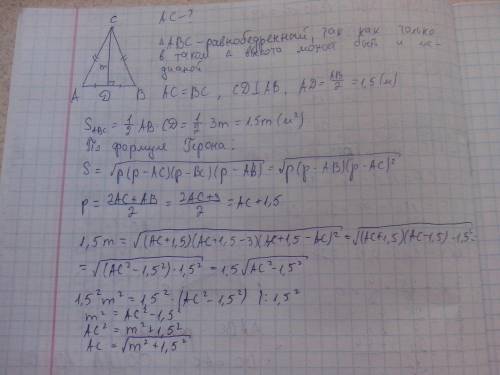 C
AC - ?
△ABC - равнобедренный, так как только
в таком △ высота может быть и ме-
дианой
m
A D B
AC = BC, CD⊥AB, AD = AB/2 = 1,5 (м)
S_ABC = 1/2 AB · CD = 1/2 · 3m = 1,5m (м²)
По формуле Герона:
S = √(p(p-AC)(p-BC)(p-AB)) = √(p(p-AB)(p-AC)²)
p = (2AC+AB)/2 = (2AC+3)/2 = AC + 1,5
1,5m = √((AC+1,5)(AC+1,5-3)(AC+1,5-AC)²) = √((AC+1,5)(AC-1,5)·1,5²) =
= √((AC²-1,5²)·1,5²) = 1,5√(AC²-1,5²)
1,5²m² = 1,5²·(AC²-1,5²) |:1,5²
m² = AC² - 1,5²
AC² = m² + 1,5²
AC = √(m² + 1,5²)